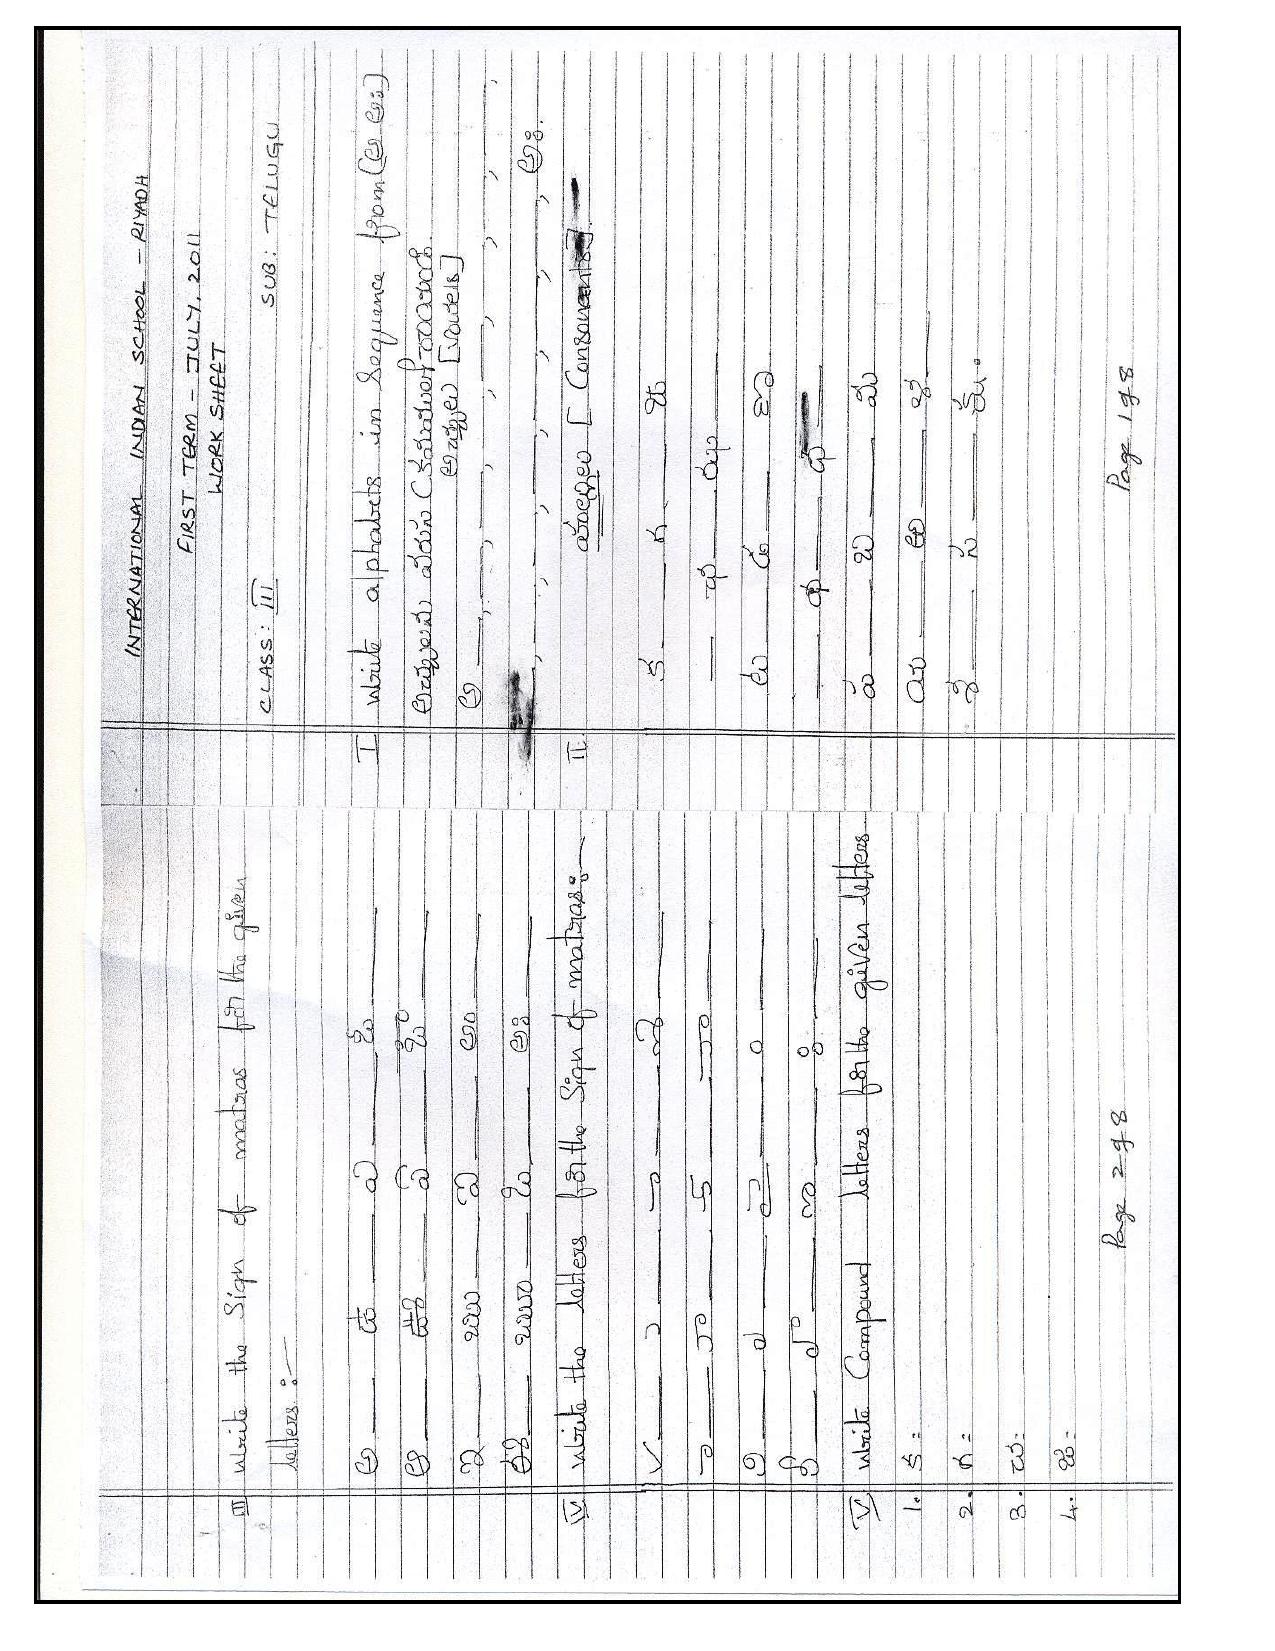 INTERNATIONAL INDIAN SCHOOL - RIYADH
FIRST TERM - JULY, 2011
WORK SHEET
CLASS: III SUB: TELUGU
I Write alphabets in Sequence from (అ అః)
అచ్చులను వరుస క్రమములో రాయండి
అచ్చులు [Vowels]
అ —, —, —, —, —, —, —, —,
—, —, —, —, —, —, —, అః.
II. హల్లులు [Consonants]
క — గ — ఙ
— ఛ — ఝ
ట — డ — ణ
— థ — ధ —
ప — బ — మ
య — ల — శ —
స — క్ష.
Page 1 of 8
III Write the Sign of matras for the given
letters :—
అ — ఉ — ఎ — ఒ —
ఆ — ఊ — ఏ — ఓ —
ఇ — ఋ — ఐ — అం —
ఈ — ౠ — ఒ — అః —
IV Write the letters for the Sign of matras:—
V Write Compound letters for the given letters
1. క =
2. గ =
3. చ =
4. జ =
Page 2 of 8